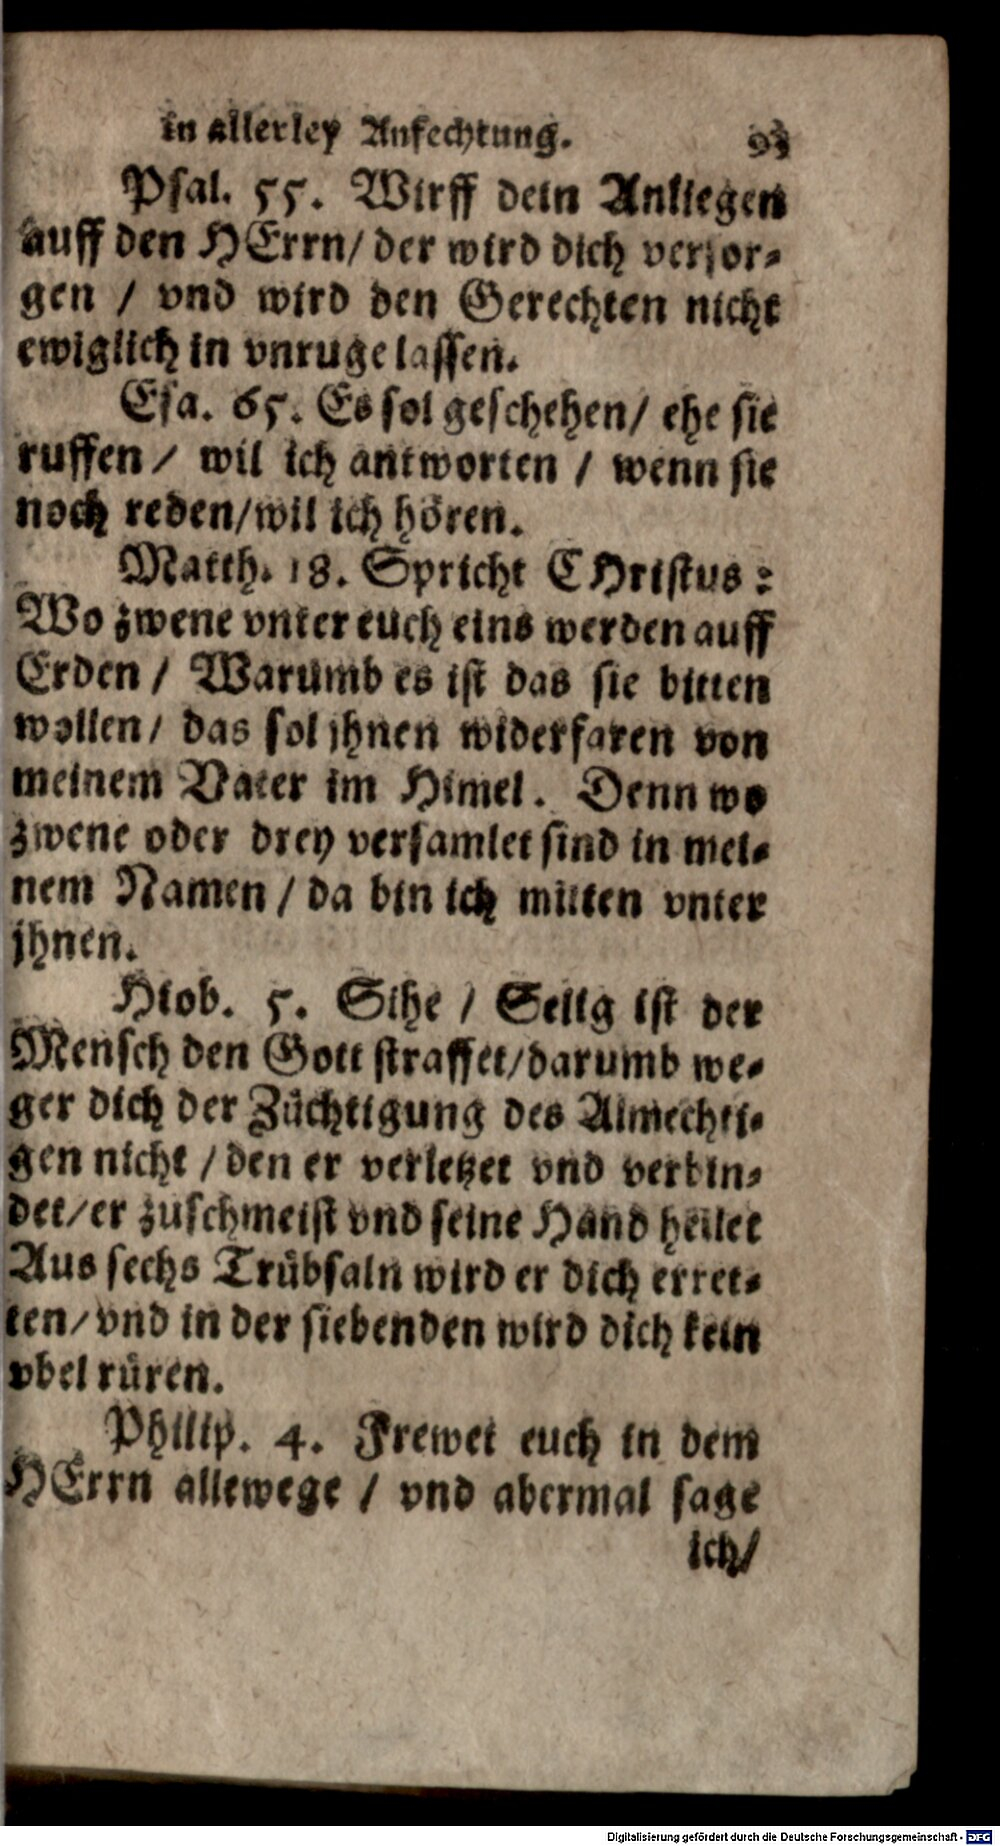 in allerley Anfechtung. 93
Psal. 55. Wirff dein Anliegen
auff den HErrn/ der wird dich versor-
gen / vnd wird den Gerechten nicht
ewiglich in vnruge lassen.
Esa. 65. Es sol geschehen/ ehe sie
ruffen / wil ich antworten / wenn sie
noch reden/wil ich hören.
Matth. 18. Spricht CHristus:
Wo zwene vnter euch eins werden auff
Erden / Warumb es ist das sie bitten
wollen/ das sol jhnen widerfaren von
meinem Vater im Himel. Denn wo
zwene oder drey versamlet sind in mei-
nem Namen / da bin ich mitten vnter
jhnen.
Hiob. 5. Sihe / Selig ist der
Mensch den Gott straffet/darumb we-
ger dich der Züchtigung des Almechti-
gen nicht / den er verletzet vnd verbin-
det/er zuschmeist vnd seine Hand heilet
Aus sechs Trübsaln wird er dich erret-
ten/vnd in der siebenden wird dich kein
vbel rüren.
Philip. 4. Frewet euch in dem
HErrn allewege / vnd abermal sage
ich/
Digitalisierung gefördert durch die Deutsche Forschungsgemeinschaft - DFG